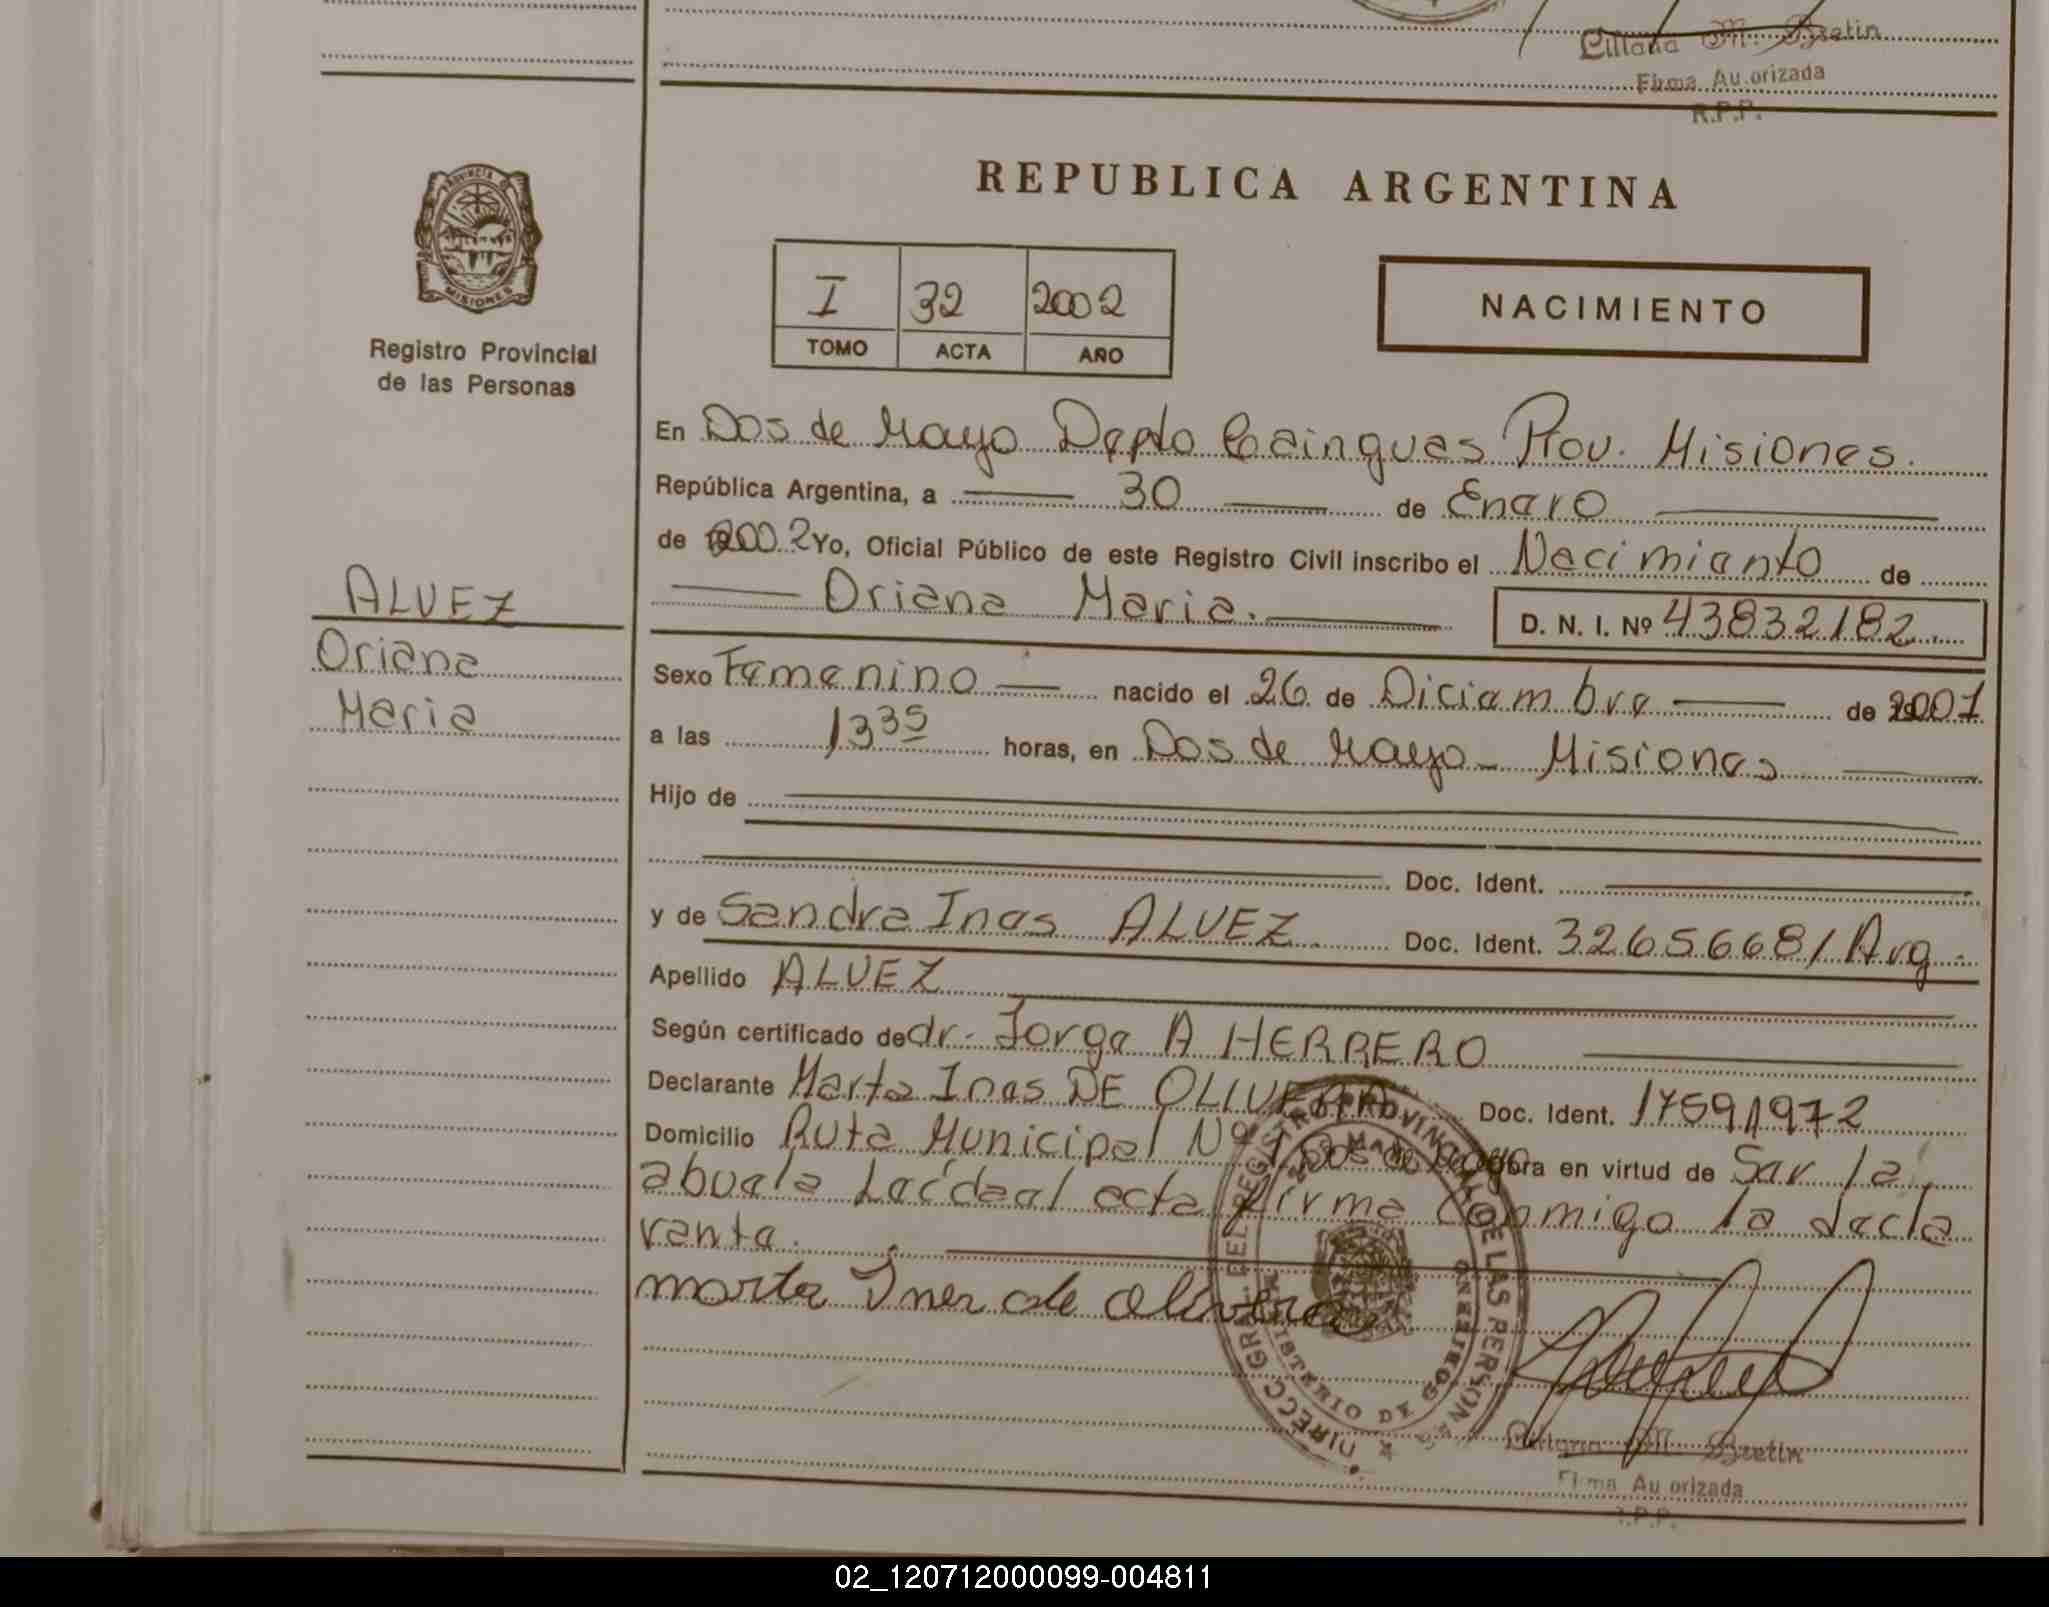 Firma Au orizada
R.P.P.
PROVINCIA DE
MISIONES
Registro Provincial
de las Personas
ALVEZ
Oriana
Maria
REPUBLICA ARGENTINA
I 32 2002
TOMO ACTA AÑO
NACIMIENTO
En Dos de Mayo Depto Cainguas Prov. Misiones.
República Argentina, a 30 de Enero
de 2002 Yo, Oficial Público de este Registro Civil inscribo el Nacimiento de
Oriana Maria.
D. N. I. Nº 43832182
Sexo Femenino nacido el 26 de Diciembre de 2001
a las 13 35 horas, en Dos de Mayo - Misiones
Hijo de
Doc. Ident.
y de Sandra Ines ALVEZ Doc. Ident. 32656681 Arg.
Apellido ALVEZ
Según certificado de dr. Jorge A HERRERO
Declarante Marta Ines DE OLIVERA Doc. Ident. 17591972
Domicilio Ruta Municipal Nº 1 Dos de Mayo Obra en virtud de Ser la
abuela Leída el acta firma conmigo la decla
rante.
marta Ines de olivera
DIRECC. GRAL. DEL REGISTRO PROVINCIAL DE LAS PERSONAS
MINISTERIO DE GOBIERNO
Bretin
Firma Au orizada
R.P.P.
02_120712000099-004811